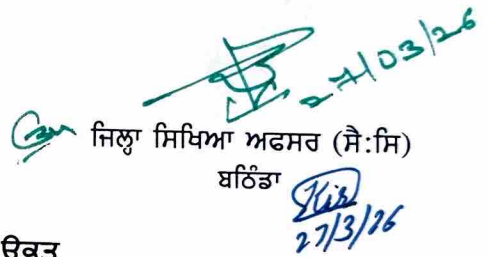 27/03/26
ਜਿਲ੍ਹਾ ਸਿਖਿਆ ਅਫਸਰ (ਸੈ:ਸਿ)
ਬਠਿੰਡਾ
27/3/26
ਉਕਤ